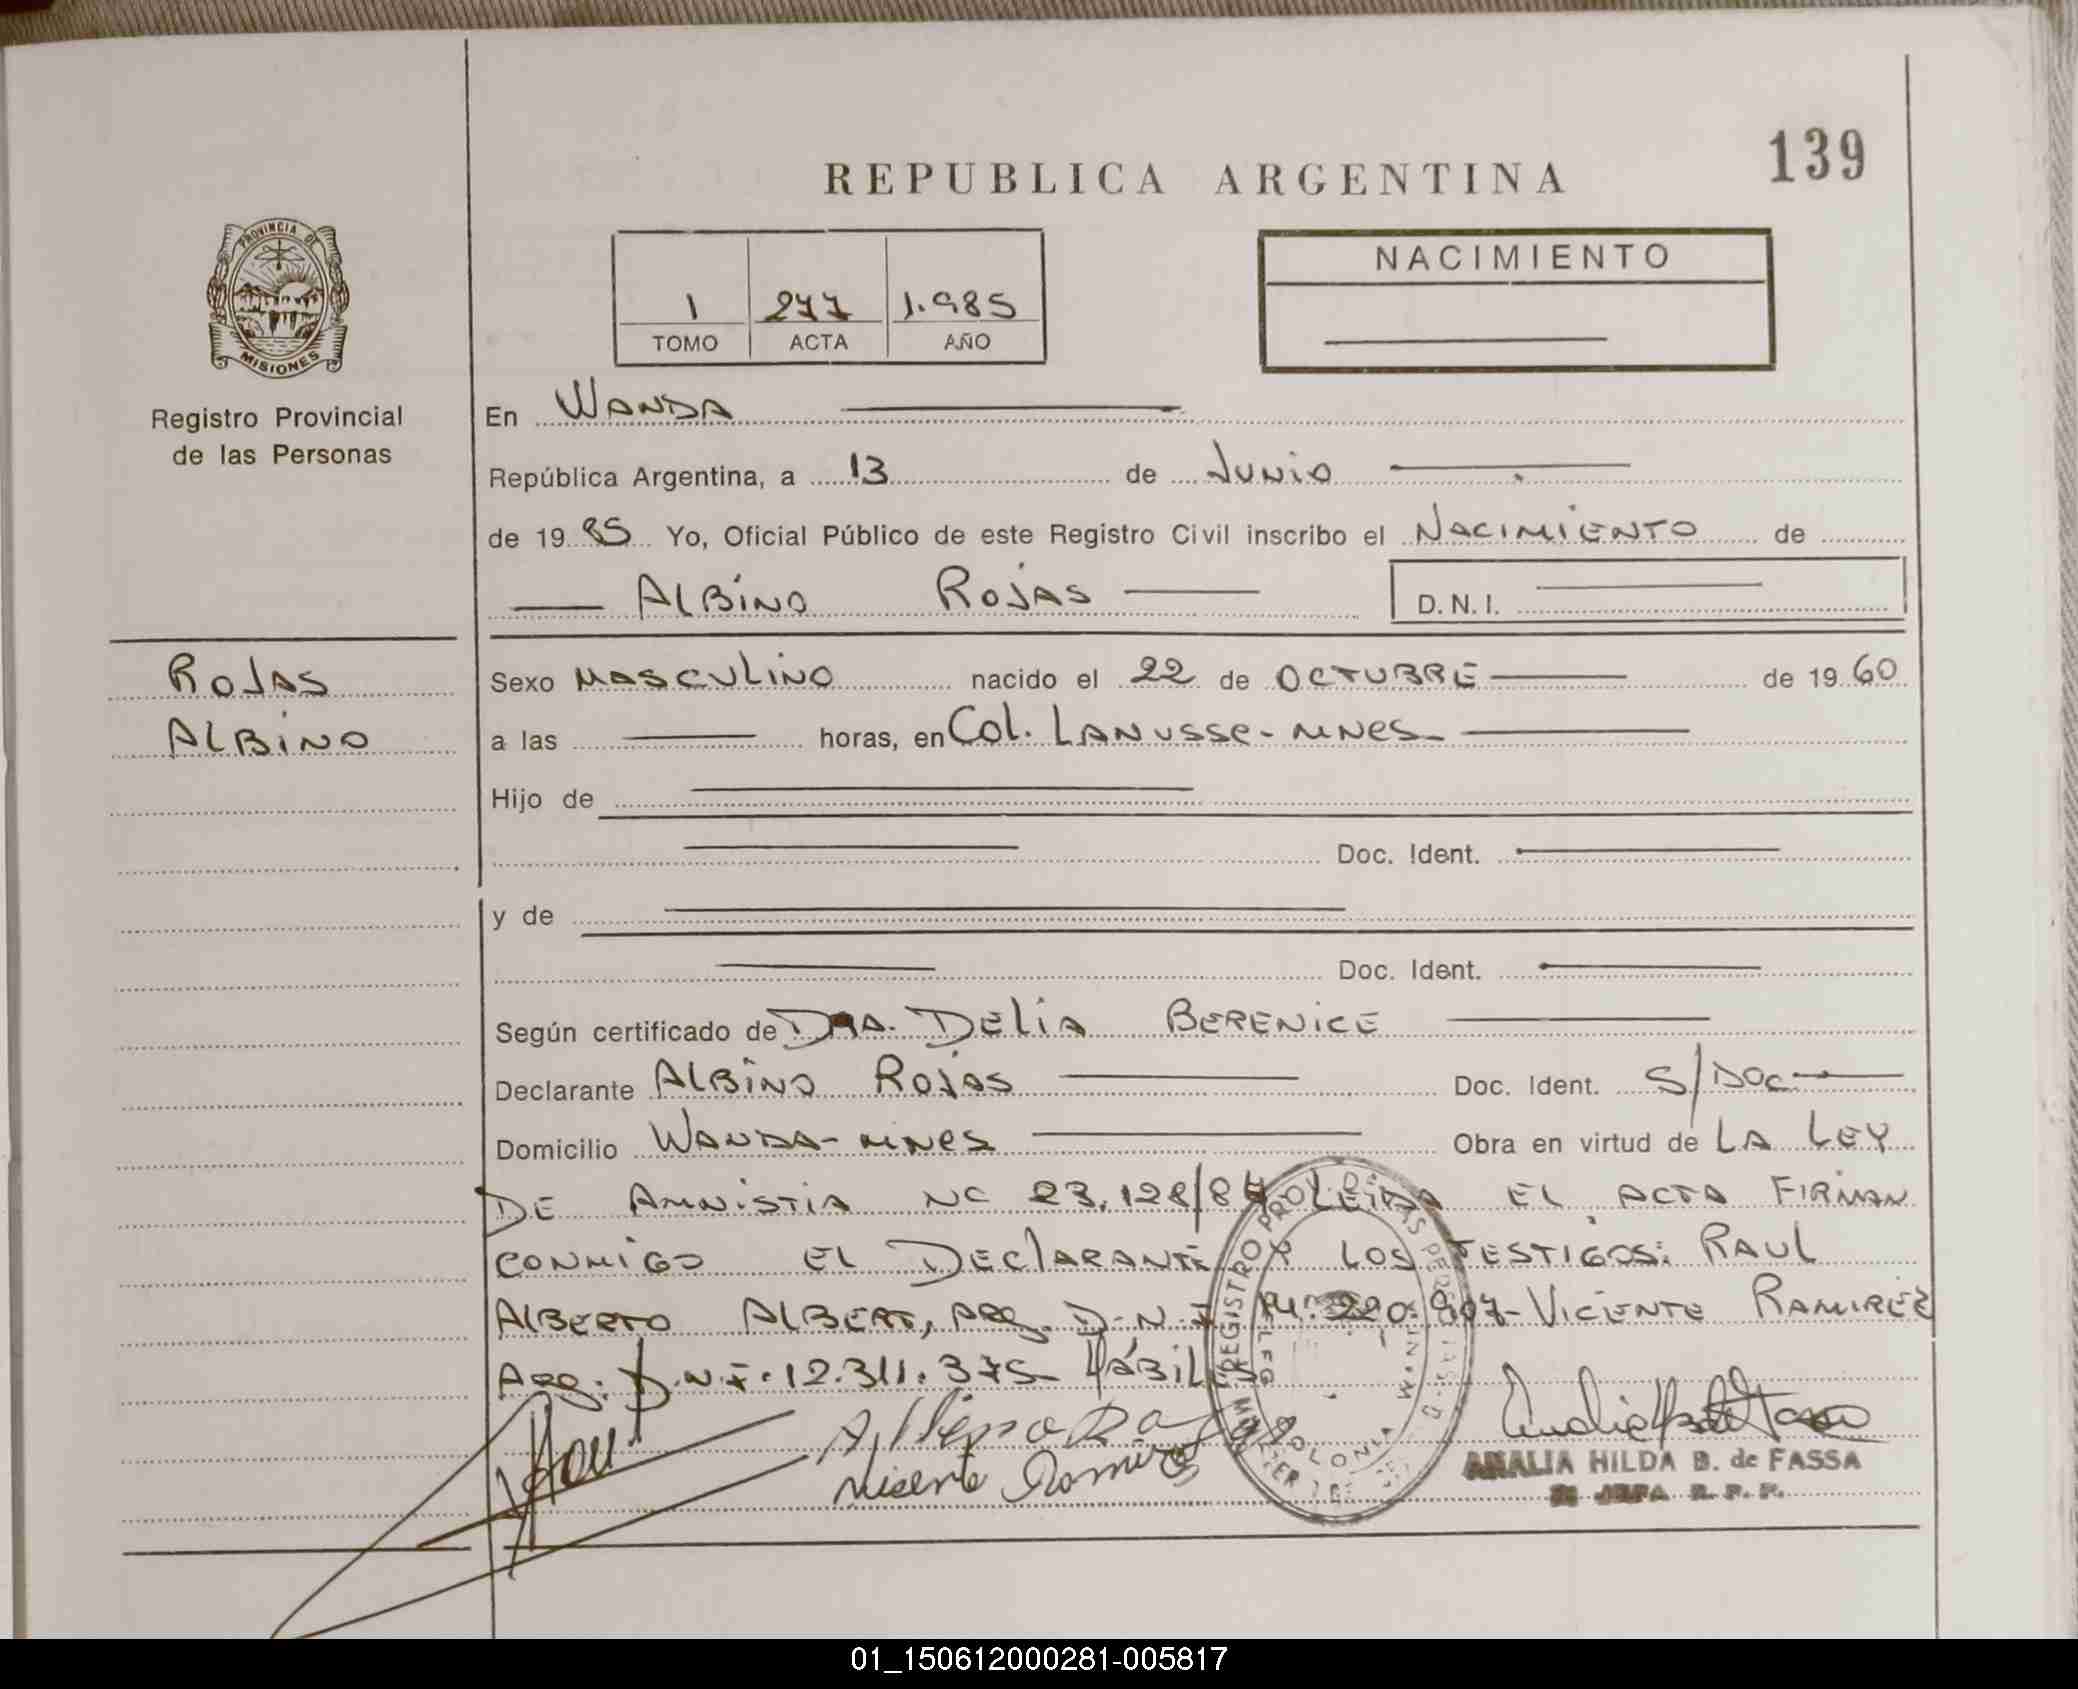 139
REPUBLICA ARGENTINA
PROVINCIA DE
MISIONES
Registro Provincial
de las Personas
1 277 1.985
TOMO ACTA AÑO
NACIMIENTO
En WANDA
República Argentina, a 13 de JUNIO
de 19 85 Yo, Oficial Público de este Registro Civil inscribo el NACIMIENTO de
ALBINO ROJAS D.N.I.
ROJAS
ALBINO
Sexo MASCULINO nacido el 22 de OCTUBRE de 19 60
a las horas, en Col. LANUSSE - MNES
Hijo de
Doc. Ident.
y de
Doc. Ident.
Según certificado de DRA. DELIA BERENICE
Declarante ALBINO ROJAS Doc. Ident. S/DOC
Domicilio WANDA - MNES Obra en virtud de LA LEY
DE AMNISTIA Nº 23.128/84 LEIDA EL ACTA FIRMAN
CONMIGO EL DECLARANTE Y LOS TESTIGOS: RAUL
ALBERTO ALBERT, ARG. D.N.I. 14.220.907 - VICENTE RAMIREZ
ARG. D.N.I. 12.311.375 - HÁBILES
Vicente Ramirez
ANALIA HILDA B. de FASSA
JEFA R. P. P.
01_150612000281-005817